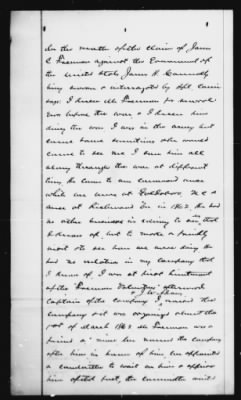 In the matter of the claim of James
C. Freeman against the Government of
the United States James H. Connelly
being sworn & interrogated by Spl. Comr
says I knew Mr Freeman for several
years before the war & I knew him
during the war. I was in the army but
came home sometimes & he would
come to see me I saw him all
along through the war at different
times. He came to our command once
while we were at Goldsboro N.C &
once at Richmond Va in 1862. He had
no other business in coming to us that
I knew of, but to make a friendly
visit to see how we were doing. He
had no relation in my company that
I know of. I was at first Lieutenant
of the "Freeman Volunteers" afterwards
Captain of the company. I raised the
company & it was organized about the
1st of March 1862. Mr Freeman was a
friend & we named the company
after him in honor of him, we appointed
a committee to wait on him & apprise
him of the fact, the committee